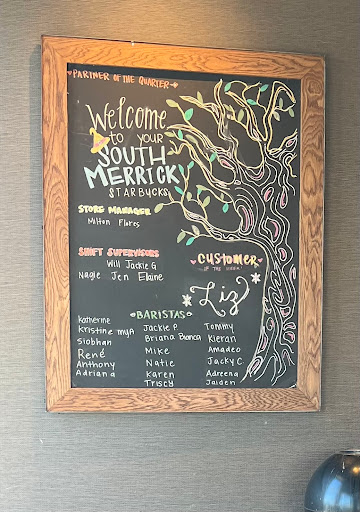 PARTNER OF THE QUARTER
Welcome
to your
SOUTH
MERRICK
STARBUCKS
STORE MANAGER
Milton Flores
SHIFT SUPERVISORS
Will Jackie G
Nagie Jen Elaine
CUSTOMER
OF THE WEEK
Liz
BARISTAS
Katherine
Kristine Mya Jackie P. Tommy
Siobhan Briana Bianca Kieran
René Mike Amadeo
Anthony Natie Jacky C.
Adriana Karen Adreena
Triscy Jaiden